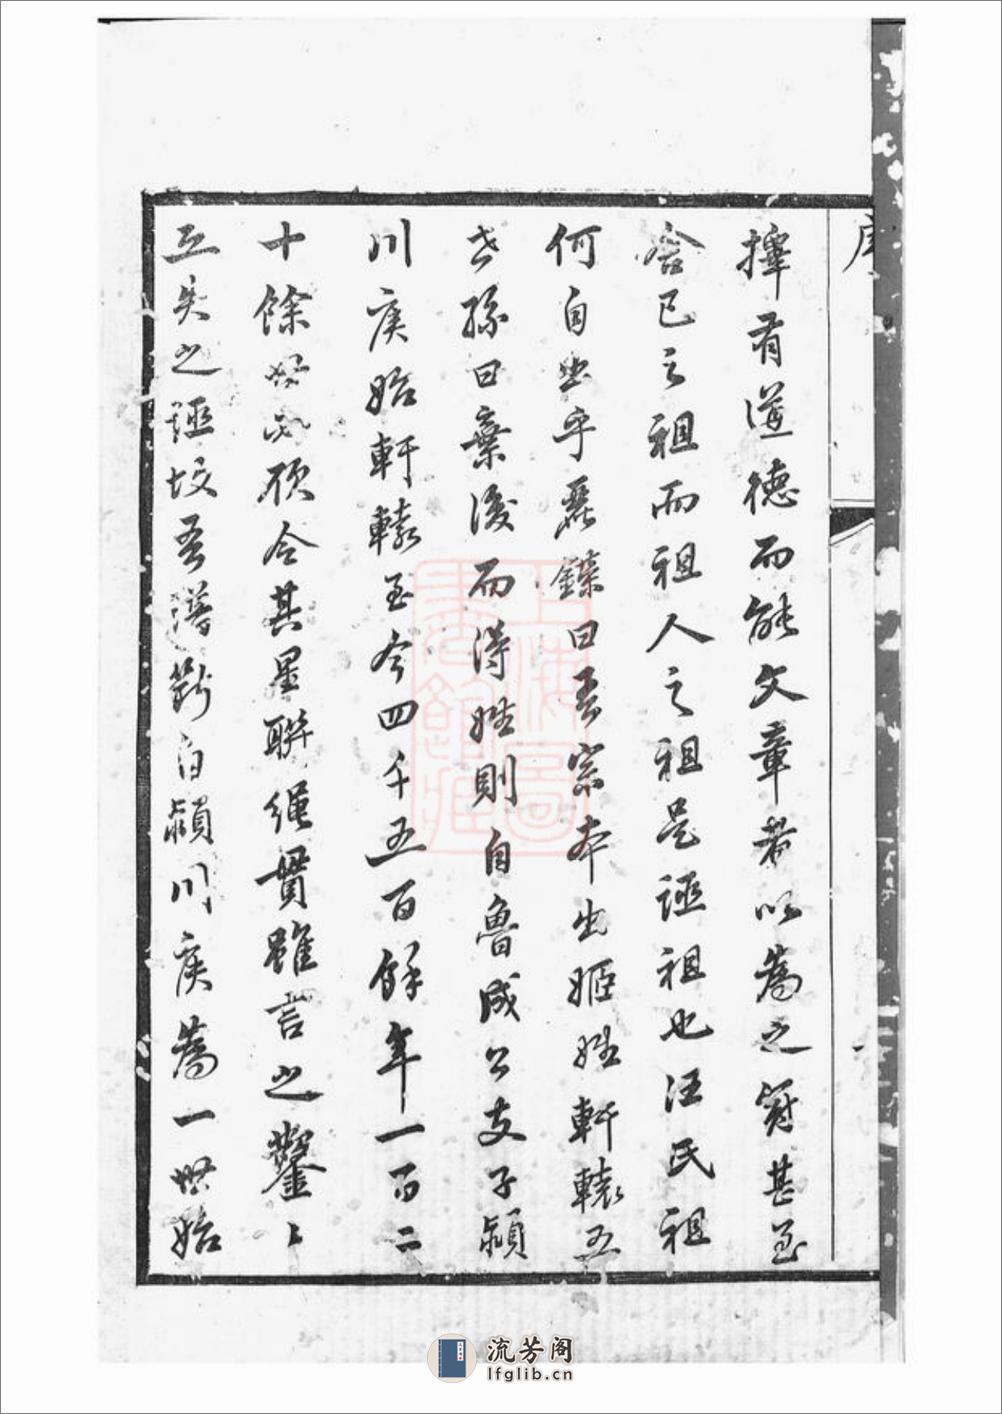 序
擇有道德而能文章者以為之冠甚至
舍己之祖而祖人之祖是誣祖也汪氏祖
何自出乎焱鎳曰吾宗本出姬姓軒轅五
世孫曰棄後而得姓則自魯成公支子潁
川侯始軒轅至今四千五百餘年一百二
十餘世矣顧今其星聯繩貫雖言之鑿〻
且失之誣故吾譜斷自潁川侯為一世始
上海圖書館藏
流芳阁
lfglib.cn